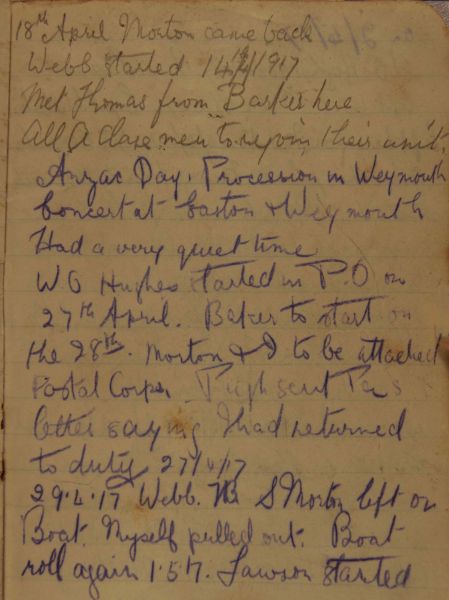 18th April Morton came back
Webb started 14/4/1917
Met Thomas from Barkers here
All A class men to rejoin their unit.
Anzac Day. Procession in Weymouth
Concert at Easton & Weymouth
Had a very quiet time
W O Hughes started in P.O on
27th April. Baker to start on
the 28th. Morton & I to be attached
Postal Corps. Pugh sent
letter saying I had returned
to duty 27/4/17
29.4.17 Webb. S Morton left on
Boat. Myself pulled out. Boat
roll again 1.5.17. Lawson started